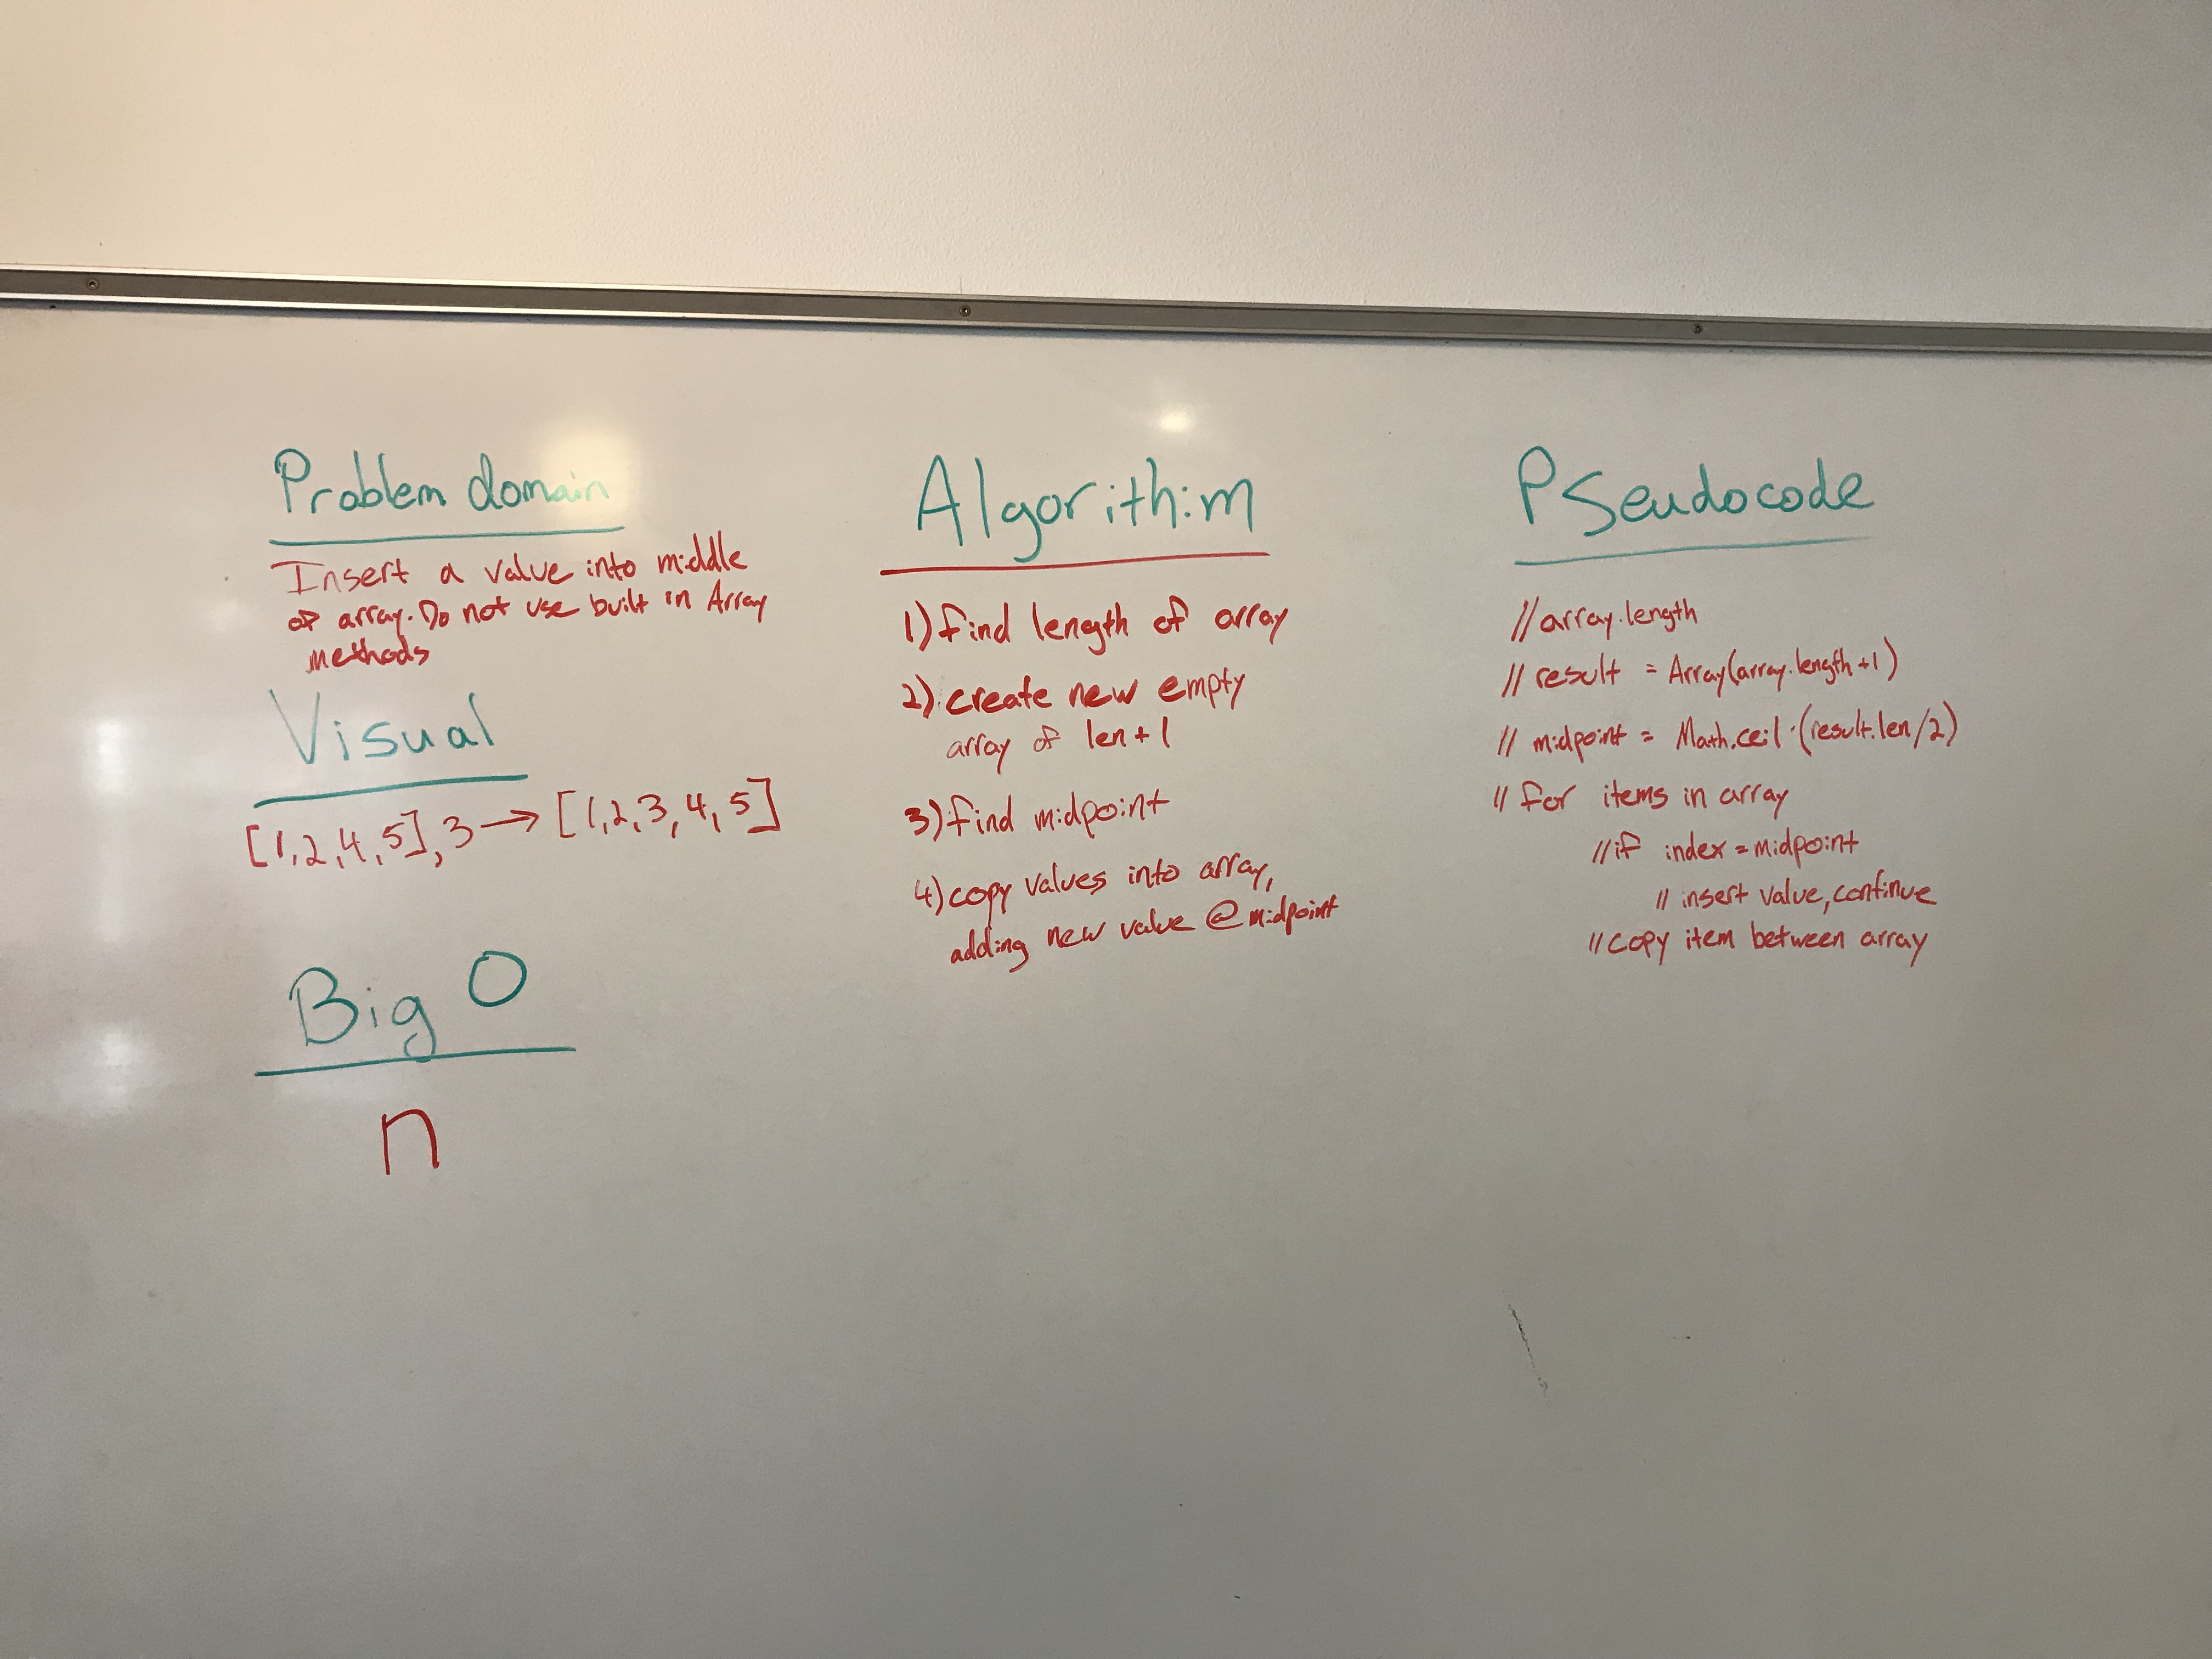 Problem domain
Insert a value into middle
of array. Do not use built in Array
methods
Visual
[1,2,4,5],3 → [1,2,3,4,5]
Big O
n
Algorithim
1) find length of array
2) create new empty
array of len + 1
3) find midpoint
4) copy values into array,
adding new value @ midpoint
Pseudocode
// array.length
// result = Array(array.length+1)
// midpoint = Math.ceil.(result.len/2)
// for items in array
// if index = midpoint
// insert value, continue
// copy item between array